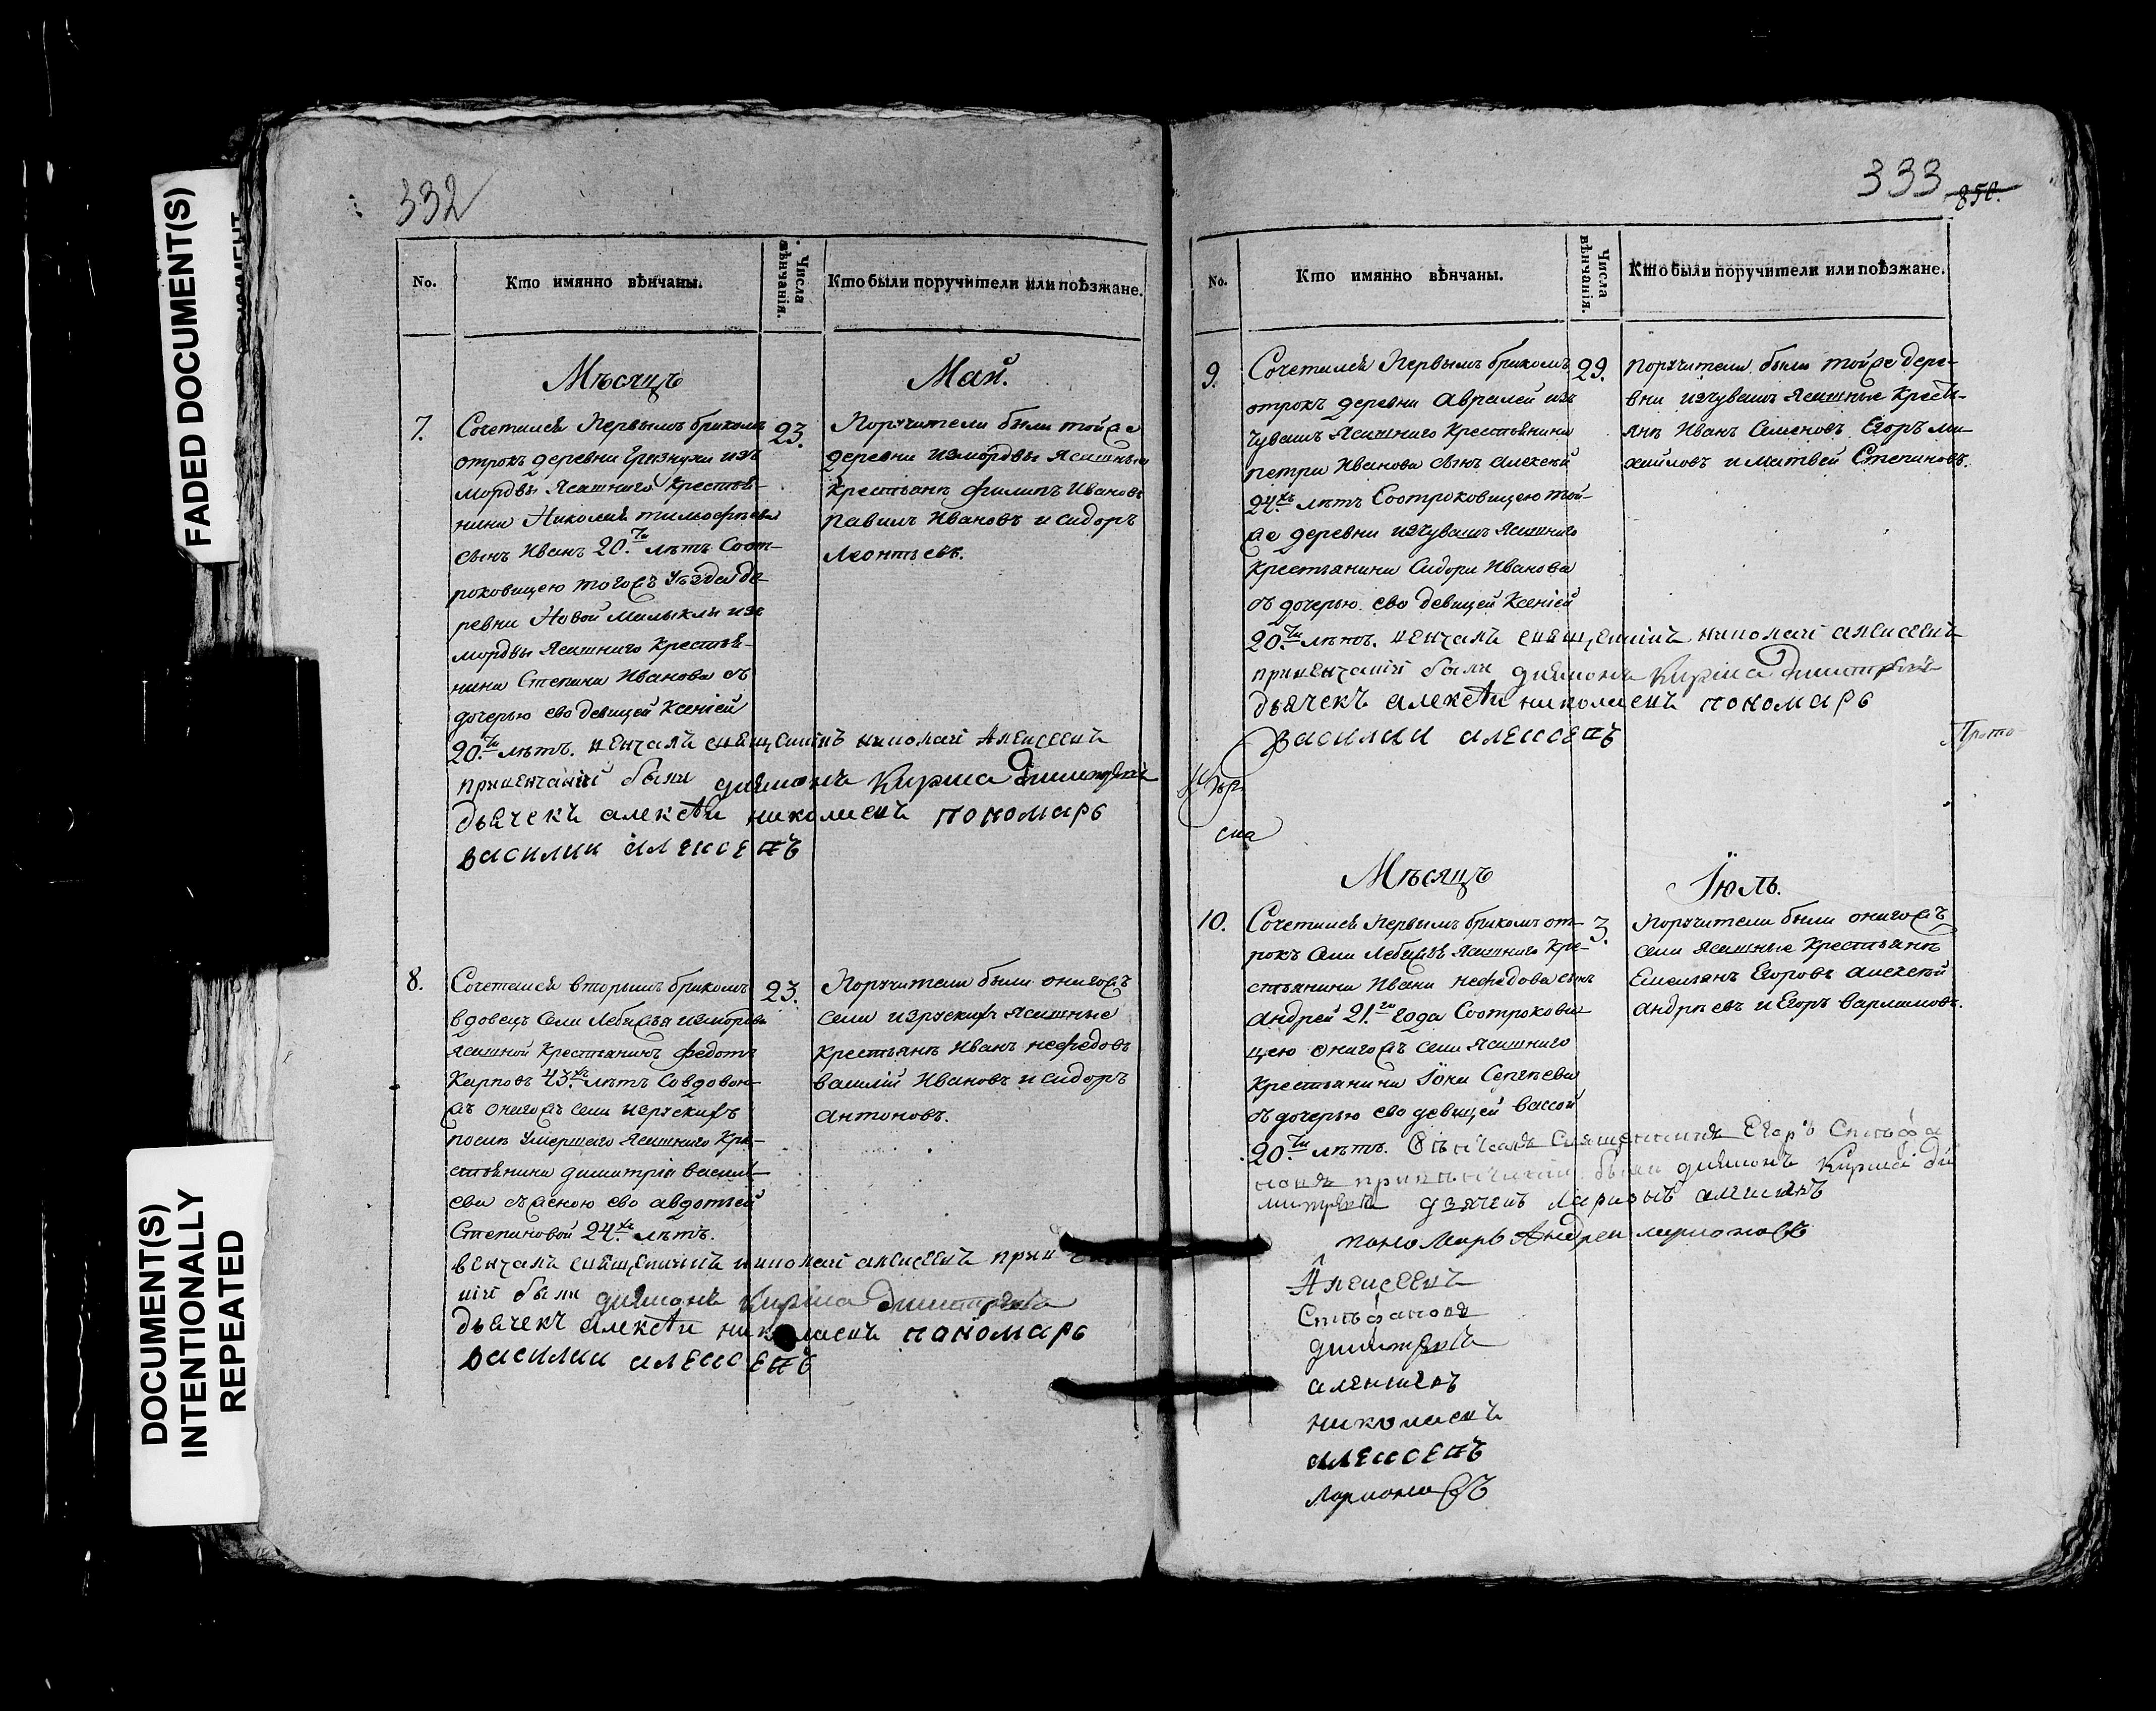 FADED DOCUMENT(S)
DOCUMENT(S)
INTENTIONALLY
REPEATED
332
No.
Кто имянно вѣнчаны.
Числа вѣнчанія.
Кто были поручители или поѣзжане.
Мѣсяцъ
Май.
7.
Сочетался Первымъ бракомъ
отрокъ деревни Грязнухи изъ
мордвы Ясашнаго Крестья-
нина Николая тимофѣева
сынъ Иванъ 20.ти лѣтъ Соот-
роковицею тогожъ Уѣзда де-
ревни Новой Малыклы изъ
мордвы Ясашнаго Крестья-
нина Степана Иванова съ
дочерью ево девицей Ксеніей
20.ти лѣтъ. венчалъ священникъ николай Алексеевъ
привенчаніи были диаконъ Кирила Димитревъ
дьячекъ алексѣи николаевъ пономарь
василии алексеевъ
23.
Поручители были тойже
деревни измордвы Ясашныя
Крестьянѣ филипъ Ивановъ
павилъ Ивановъ и сидоръ
леонтьевъ.
8.
Сочетался вторымъ бракомъ
вдовецъ Села Лебяжья измордвы
ясашной Крестьянинъ федотъ
Карповъ 43.хъ лѣтъ Совдовою
жъ оногожъ села изрускихъ
послѣ Умершаго Ясашнаго Кре-
стьянина димитрія василь-
ева съ женою ево авдотьей
Степановой 24.хъ лѣтъ.
венчалъ священникъ николай алексеевъ
ніи были диаконъ Кирила Димитревъ
дьячекъ алексѣи николаевъ пономарь
василии алексеевъ
23.
Поручители были оногожъ
села изрускихъ Ясашные
Крестьянѣ Иванъ нефедовъ
василій Ивановъ и сидоръ
антоновъ.
333
850.
No.
Кто имянно вѣнчаны.
Числа вѣнчанія.
Кто были поручители или поѣзжане.
9.
Сочетался Первымъ бракомъ
отрокъ деревни Авралей изъ
чувашъ Ясашнаго Крестьянина
петра Иванова сынъ алексѣй
24.хъ лѣтъ Соотроковицею той-
же деревни изчувашъ Ясашнаго
Крестьянина Сидора Иванова
съ дочерью ево девицей Ксеніей
20.ти лѣтъ. венчалъ священникъ николай алексеевъ
привенчаніи были диаконъ Кирила Димитревъ
дьячекъ алексѣи николаевъ пономарь
василии алексеевъ
29.
поручители были тойже дере-
вни изчувашъ Ясашные Кресть-
янѣ Иванъ Семеновъ Егоръ ми-
хайловъ и матвей Степановъ.
Прото-
Мѣсяцъ
Іюль.
10.
Сочетался Первымъ бракомъ от-
рокъ села Лебяжья Ясашнаго Кре-
стьянина Ивана нефедова сынъ
андрей 21.го Года Соотрокови-
цею оногожъ села Ясашнаго
Крестьянина Іоны Сергѣева
съ дочерью ево девицей вассой
20.ти лѣтъ. Вѣнчалъ Священникъ Егоръ Стѣфа
новъ были диаконъ Кирила Ди
митревъ
пономарь Андреи ларионовъ
3.
поручители были оногожъ
села Ясашные Крестьянѣ
Емельянъ Егоровъ алексѣй
андрѣевъ и Егоръ варламовъ.
Алексеевъ
Стѣфановъ
димитревъ
николаевъ
алексеевъ
Ларионовъ